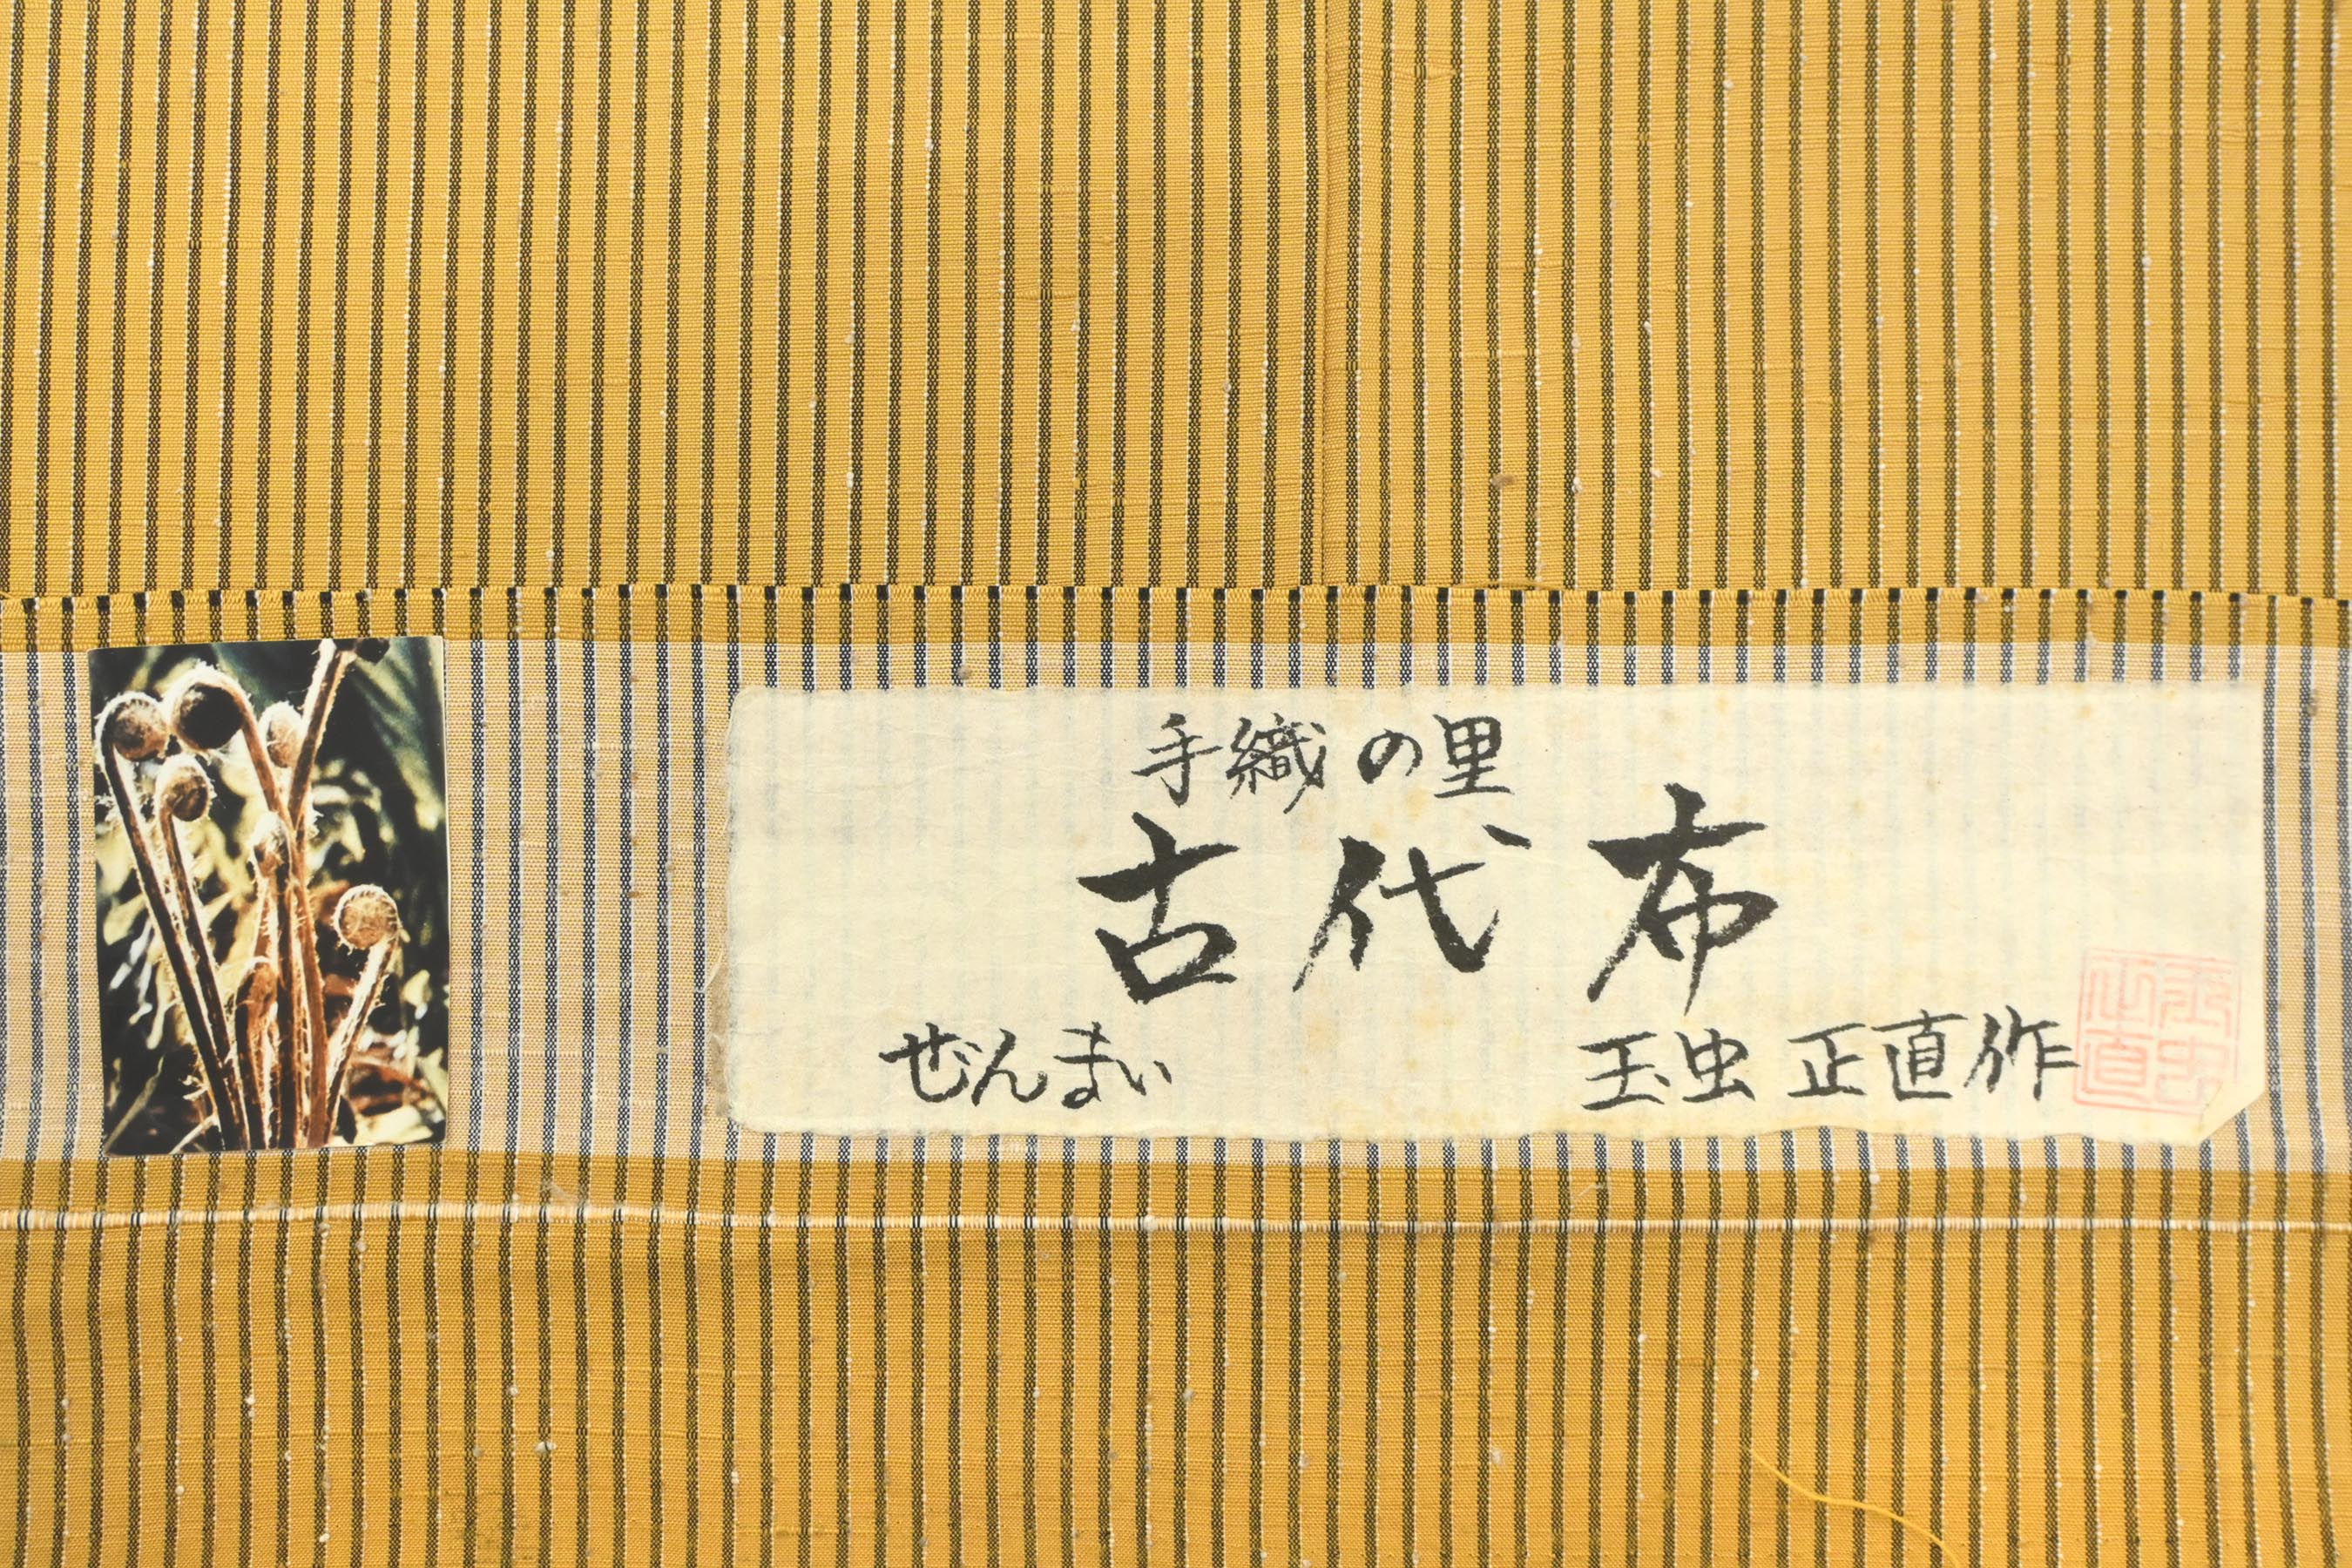 手織の里
古代布
ぜんまい
玉虫正直作
玉虫正直